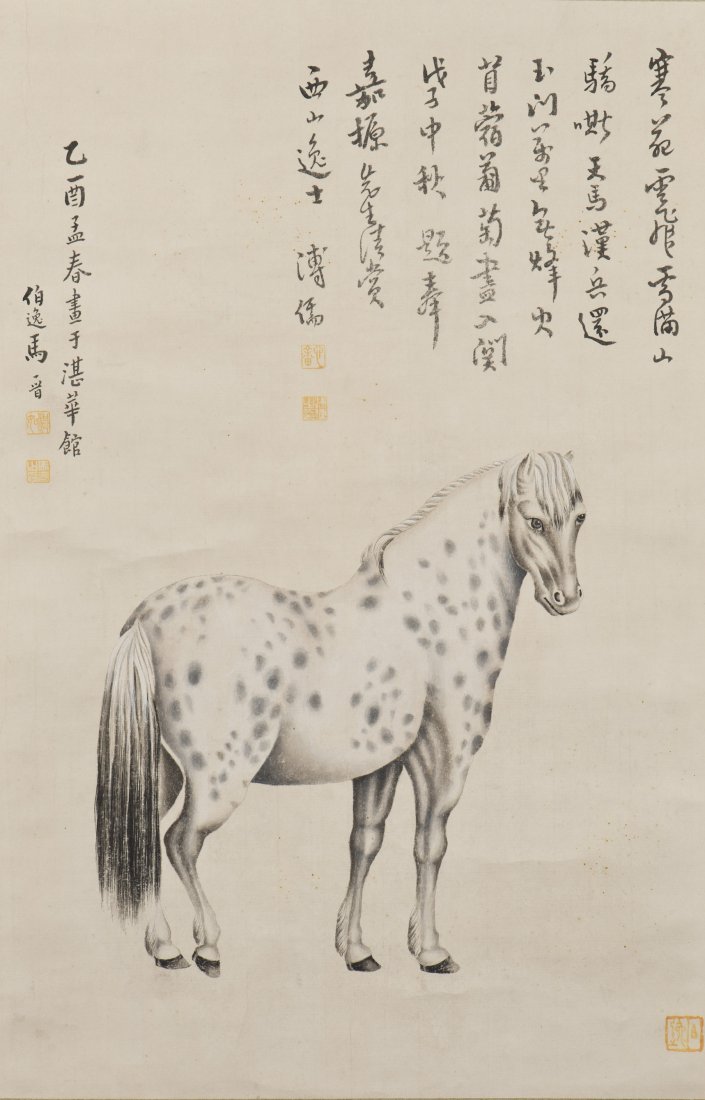 寒苑雲飛雪滿山
驕嘶天馬漢兵還
玉門萬里無烽火
苜蓿葡萄盡入關
戊子中秋題奉
嘉先生清賞
西山逸士溥儒
乙酉孟春畫于湛華館
伯逸馬晉